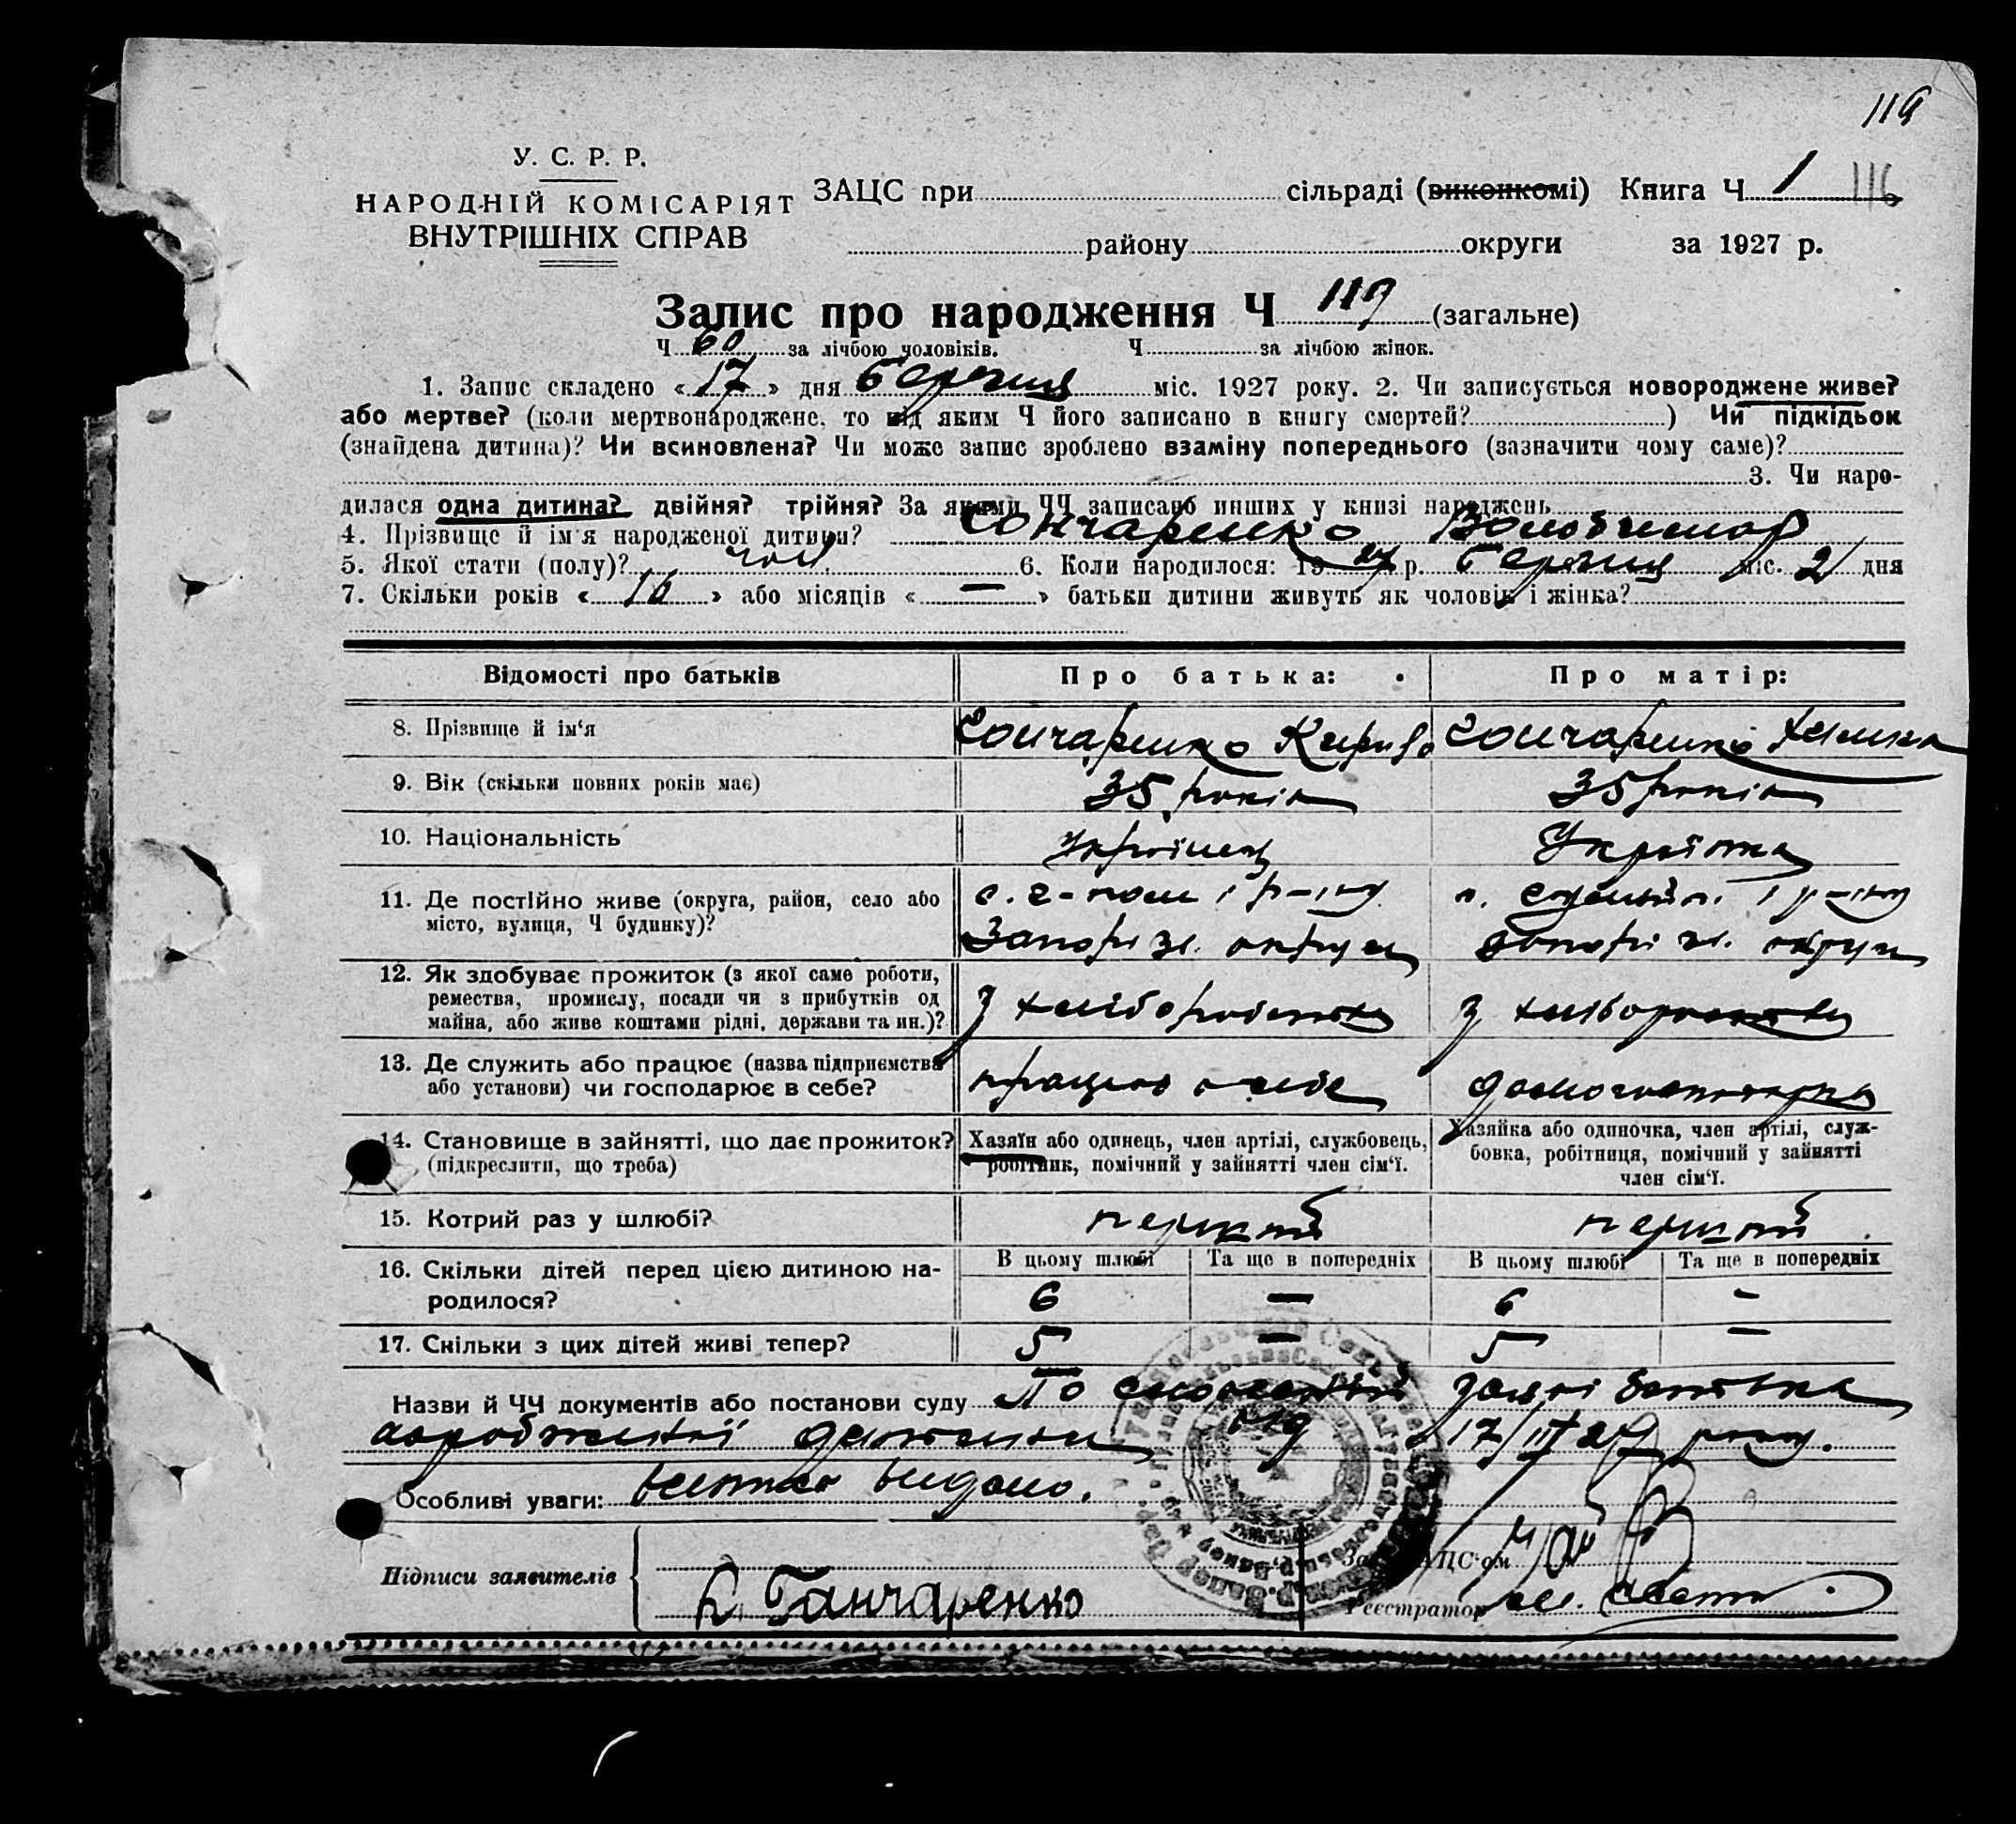 119
У. С. Р. Р.
НАРОДНІЙ КОМІСАРІЯТ
ВНУТРІШНІХ СПРАВ
ЗАЦС при сільраді (виконкомі) Книга Ч 1 116
району округи за 1927 р.
Запис про народження Ч 119 (загальне)
Ч 60 за лічбою чоловіків. Ч за лічбою жінок.
1. Запис складено «17» дня березня міс. 1927 року. 2. Чи записується новороджене живе?
або мертве? (коли мертвонароджене, то під яким Ч його записано в книгу смертей? ) Чи підкідьок
(знайдена дитина)? Чи всиновлена? Чи може запис зроблено взаміну попереднього (зазначити чому саме)?
3. Чи наро-
дилася одна дитина? двійня? трійня? За якими ЧЧ записано инших у книзі народжень
4. Прізвище й ім'я народженої дитини? Гончаренко Володимир
5. Якої стати (полу)? чол. 6. Коли народилося: 1927 р. березня міс. 2 дня
7. Скільки років «16» або місяців «—» батьки дитини живуть як чоловік і жінка?
Відомості про батьків Про батька: Про матір:
8. Прізвище й ім'я Гончаренко Кирило Гончаренко
9. Вік (скільки повних років має) 35 років 35 років
10. Національність Українец Українка
11. Де постійно живе (округа, район, село або
місто, вулиця, Ч будинку)?
Запоріз. округи Запоріз. округи
12. Як здобуває прожиток (з якої саме роботи,
ремества, промислу, посади чи з прибутків од
майна, або живе коштами рідні, держави та ин.)?
з хліборобства з хліборобства
13. Де служить або працює (назва підприємства
або установи) чи господарює в себе?
працює в себе домогосподарка
14. Становище в зайнятті, що дає прожиток?
(підкреслити, що треба)
Хазяїн або одинець, член артілі, службовець,
робітник, помічний у зайнятті член сім'ї.
Хазяйка або одиночка, член артілі, служ-
бовка, робітниця, помічний у зайнятті
член сім'ї.
15. Котрий раз у шлюбі? перший перший
16. Скільки дітей перед цією дитиною на-
родилося?
В цьому шлюбі Та ще в попередніх В цьому шлюбі Та ще в попередніх
6 — 6 -
17. Скільки з цих дітей живі тепер? 5 — 5 —
Назви й ЧЧ документів або постанови суду По словесній заяві батька
народженної дитини від 17/III 27 року.
Особливі уваги: видано.
Підписи заявителів
К. Ганчаренко
Зав. ЗАЦС'ом
Реєстратор